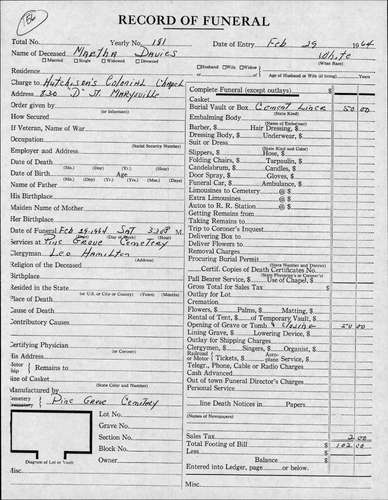 186
RECORD OF FUNERAL
Total No.
Yearly No. 181
Date of Entry Feb 29 1964
Name of Deceased Martha Davies
White
(What Race)
Married Single Widowed Divorced
Husband Wife Widow
or
Age of Husband or Wife (if living) Years
Residence
Charge to Hutchison's Colonial Chapel
Address 830 "D" St. Marysville
Order given by
(or informant)
How Secured
If Veteran, Name of War
Occupation
(Social Security Number)
Employer and Address
Date of Death
(Mo.) (Day) (Yr.) (Hour)
Date of Birth Age
(Mo.) (Day) (Yr.) (Years) (Mos.) (Days)
Name of Father
His Birthplace
Maiden Name of Mother
Her Birthplace
Date of Funeral Feb 29, 1964 Sat M
(Mo.) (Day) (Yr.) (Day of Week) (Hour)
Services at Pine Grove Cemetery
Clergyman Leo Hamilton
(Address)
Religion of the Deceased
Birthplace
Resided in the State
(or U.S. or City or County) (Years) (Months)
Place of Death
Cause of Death
Contributory Causes
Certifying Physician
(or Coroner)
His Address
Motor
Ship Remains to
Size of Casket
(State Color and Number)
Manufactured by
Cemetery
Pine Grove Cemetery
Lot No.
Grave No.
Section No.
Block No.
Owner
Diagram of Lot or Vault
Misc.
Complete Funeral (except outlays) $
Casket
Burial Vault or Box Cement Liner 50 00
(State Kind)
Embalming Body
(Name of Embalmer)
Barber, $ Hair Dressing, $
Dressing Body, $ Underwear, $
Suit or Dress
(State Kind)
Slippers, $ Hose, $
Folding Chairs, $ Tarpaulin, $
Candelabrum, $ Candles, $
Door Spray, $ Gloves, $
Funeral Car, $ Ambulance, $
Limousines to Cemetery @ $
Extra Limousines @ $
Autos to R. R. Station @ $
Getting Remains from
Taking Remains to
Trip to Coroner's Inquest
Delivering Box to
Deliver Flowers to
Removal Charges
Procuring Burial Permit
(State Number and District)
Certif. Copies of Death Certificates No.
(State Physician's or Coroner's)
Pall Bearer Service, $ Use of Chapel, $
Gross Total for Sales Tax $
Outlay for Lot
Cremation
Flowers, $ Palms, $ Matting, $
Rental of Tent, $ of Temporary Vault, $
Opening of Grave or Tomb & Closing 50 00
Lining Grave, $ Lowering Device, $
Outlay for Shipping Charges
Clergymen, $ Singers, $ Organist, $
Railroad
or Motor Tickets, $ Aero-
plane Service, $
Telegr., Phone, Cable or Radio Charges
Cash Advanced
Out of town Funeral Director's Charges
Personal Service
line Death Notices in Papers
(Names of Newspapers)
Sales Tax 2 00
Total Footing of Bill $ 102 00
Less $
Balance $
Entered into Ledger, page or below.
Misc.